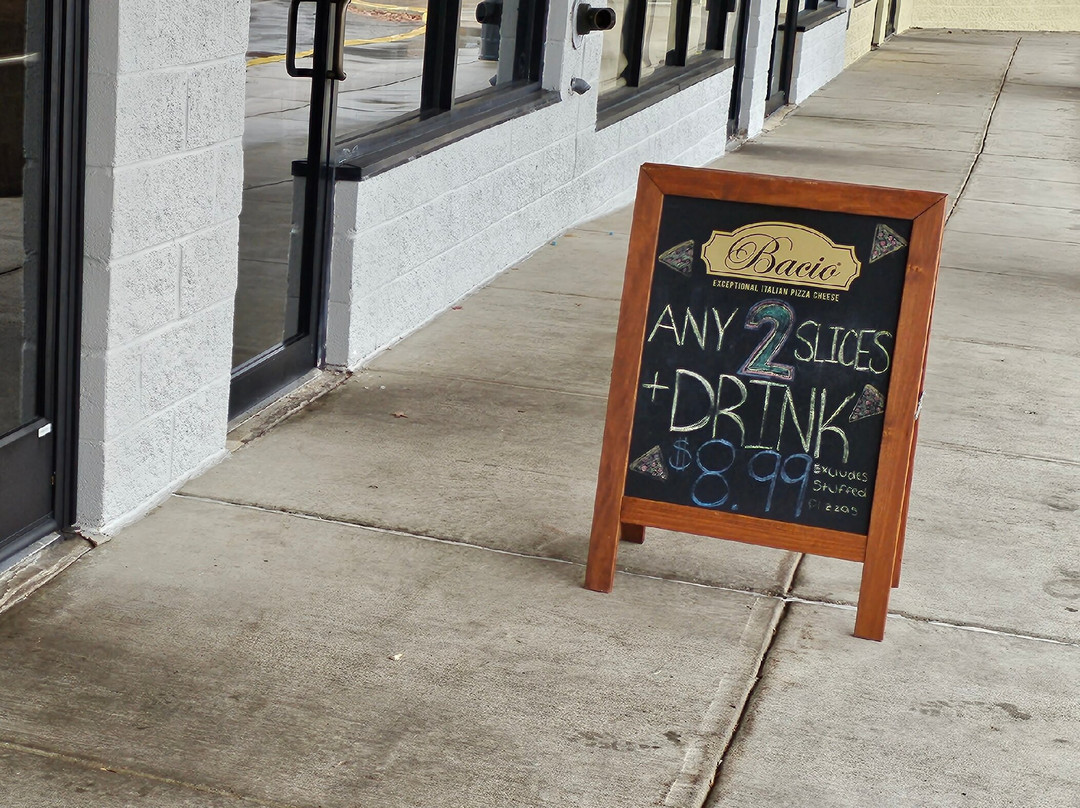 Bacio
EXCEPTIONAL ITALIAN PIZZA CHEESE
ANY 2 SLICES
+ DRINK
$8.99
Excludes
Stuffed
Pizzas